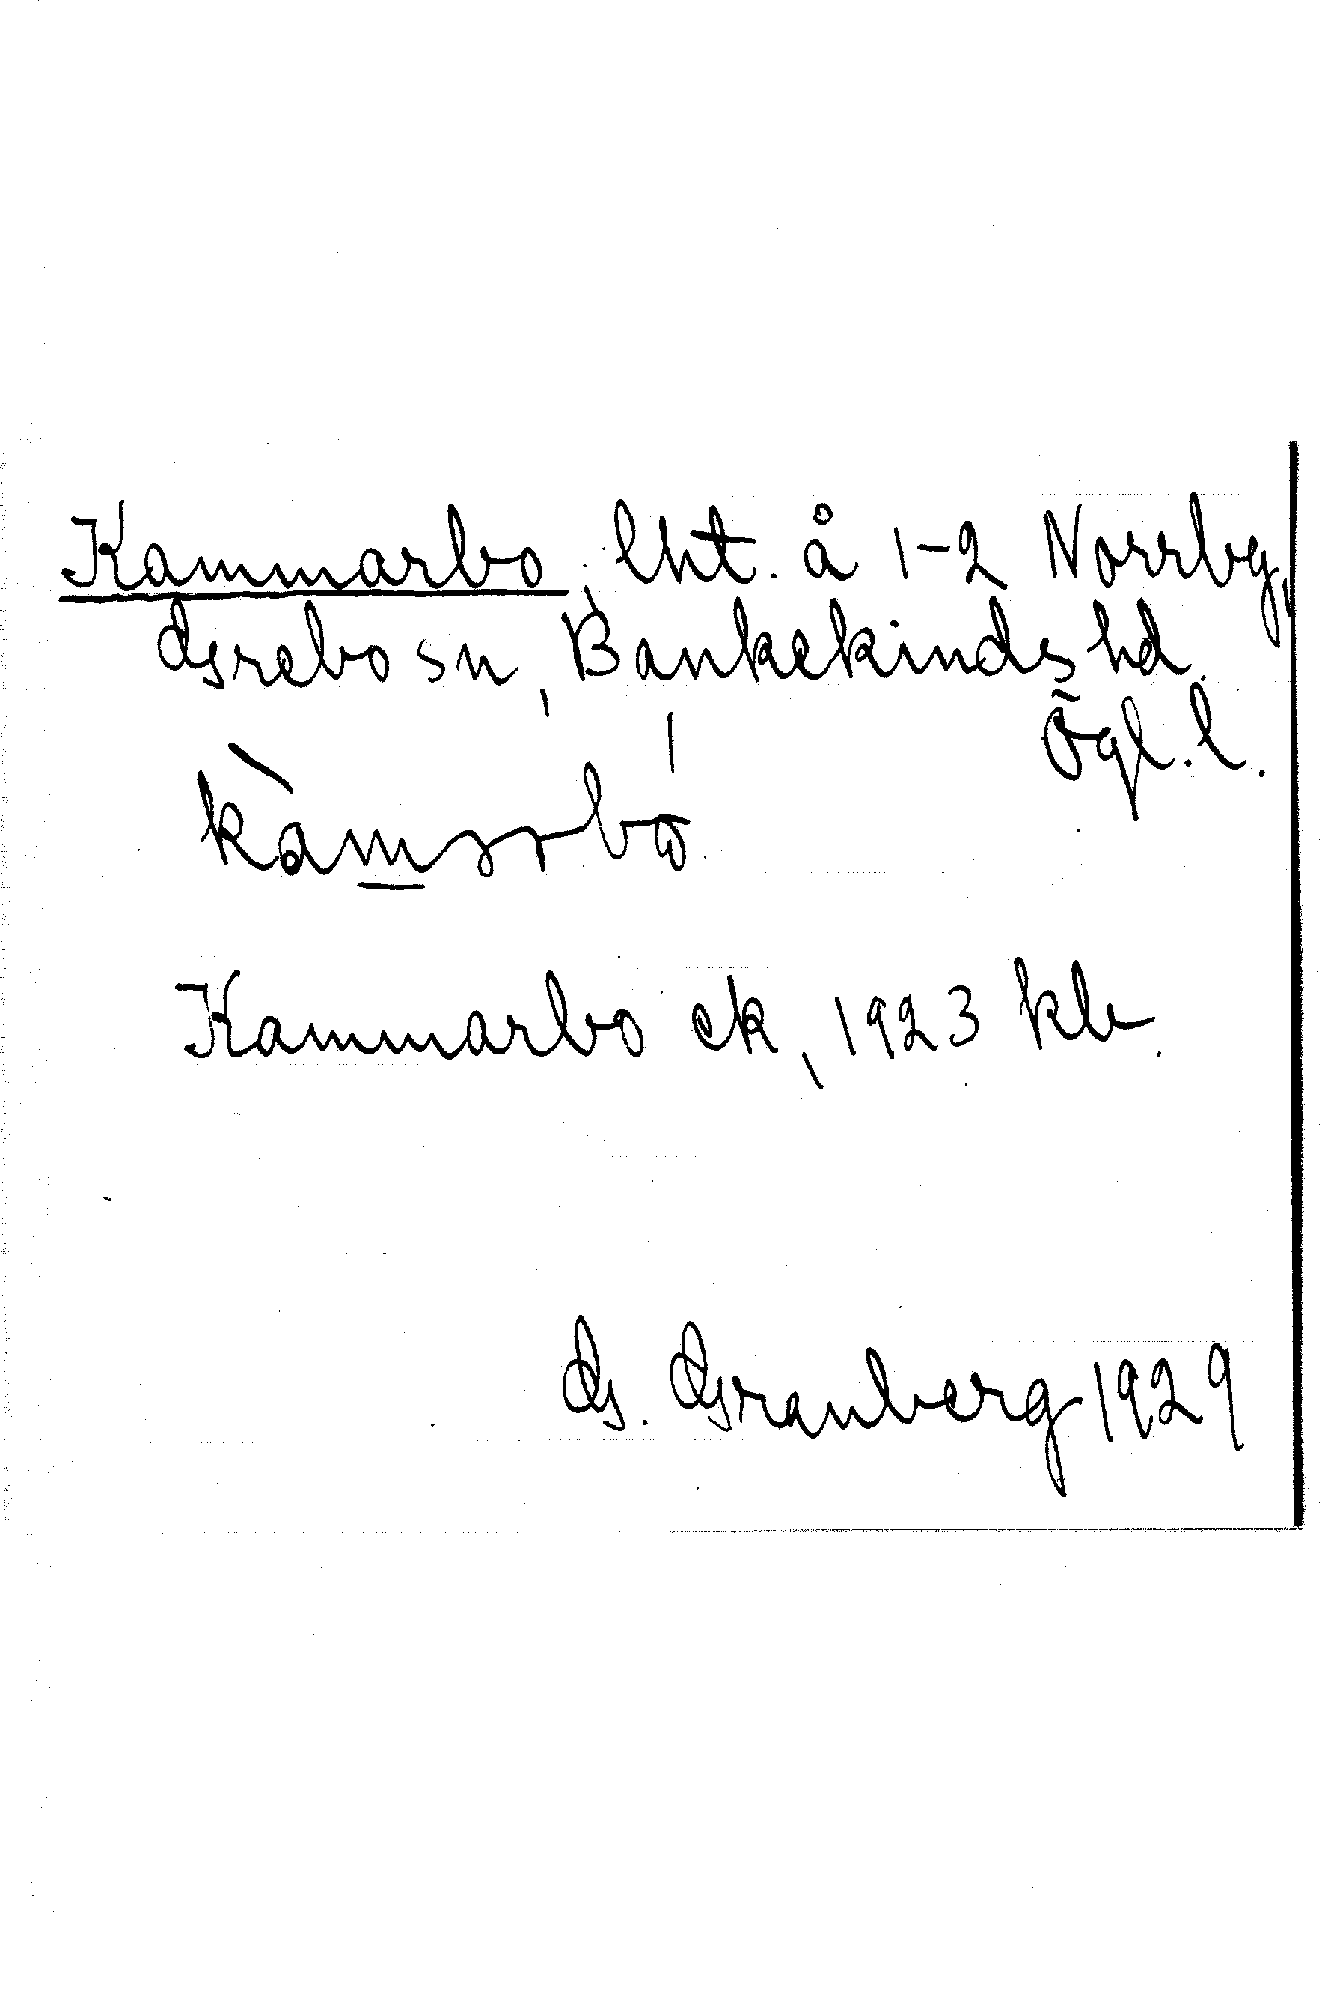 Kammarbo, lht. å 1-2 Norrby,
Grebo sn, Bankekinds hd.
Ögl. l.
Kammarbo ek, 1923 kb.
G. Granberg 1929